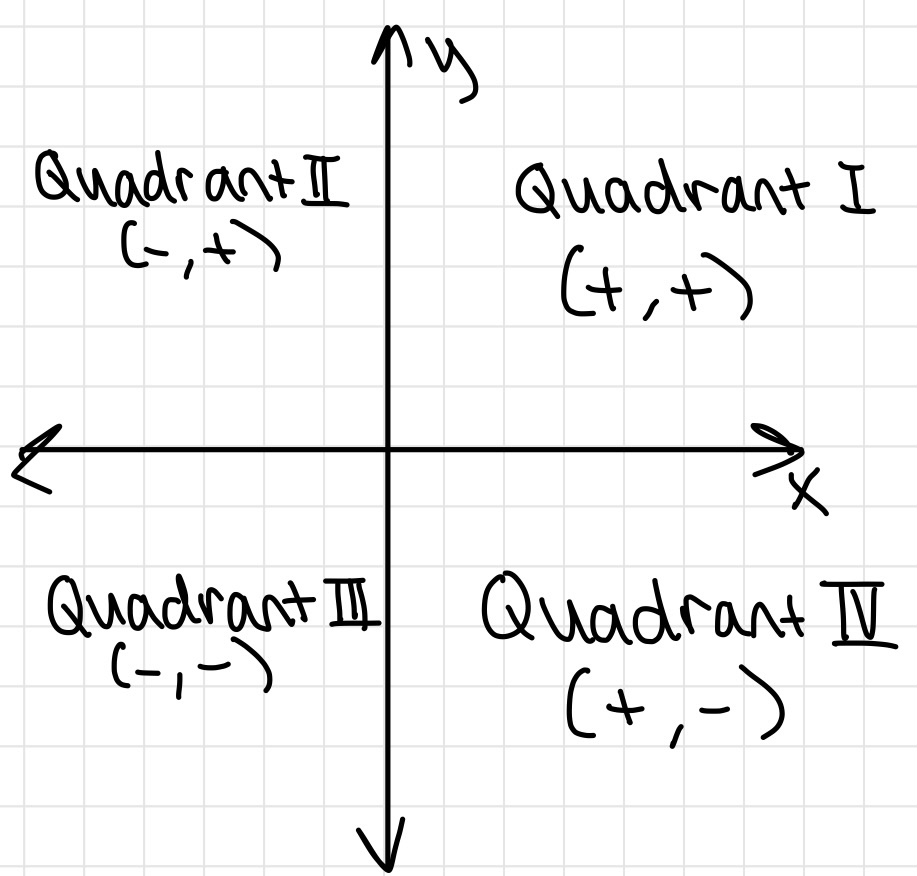 y
Quadrant II
(-,+)
Quadrant I
(+,+)
x
Quadrant III
(-,-)
Quadrant IV
(+,-)